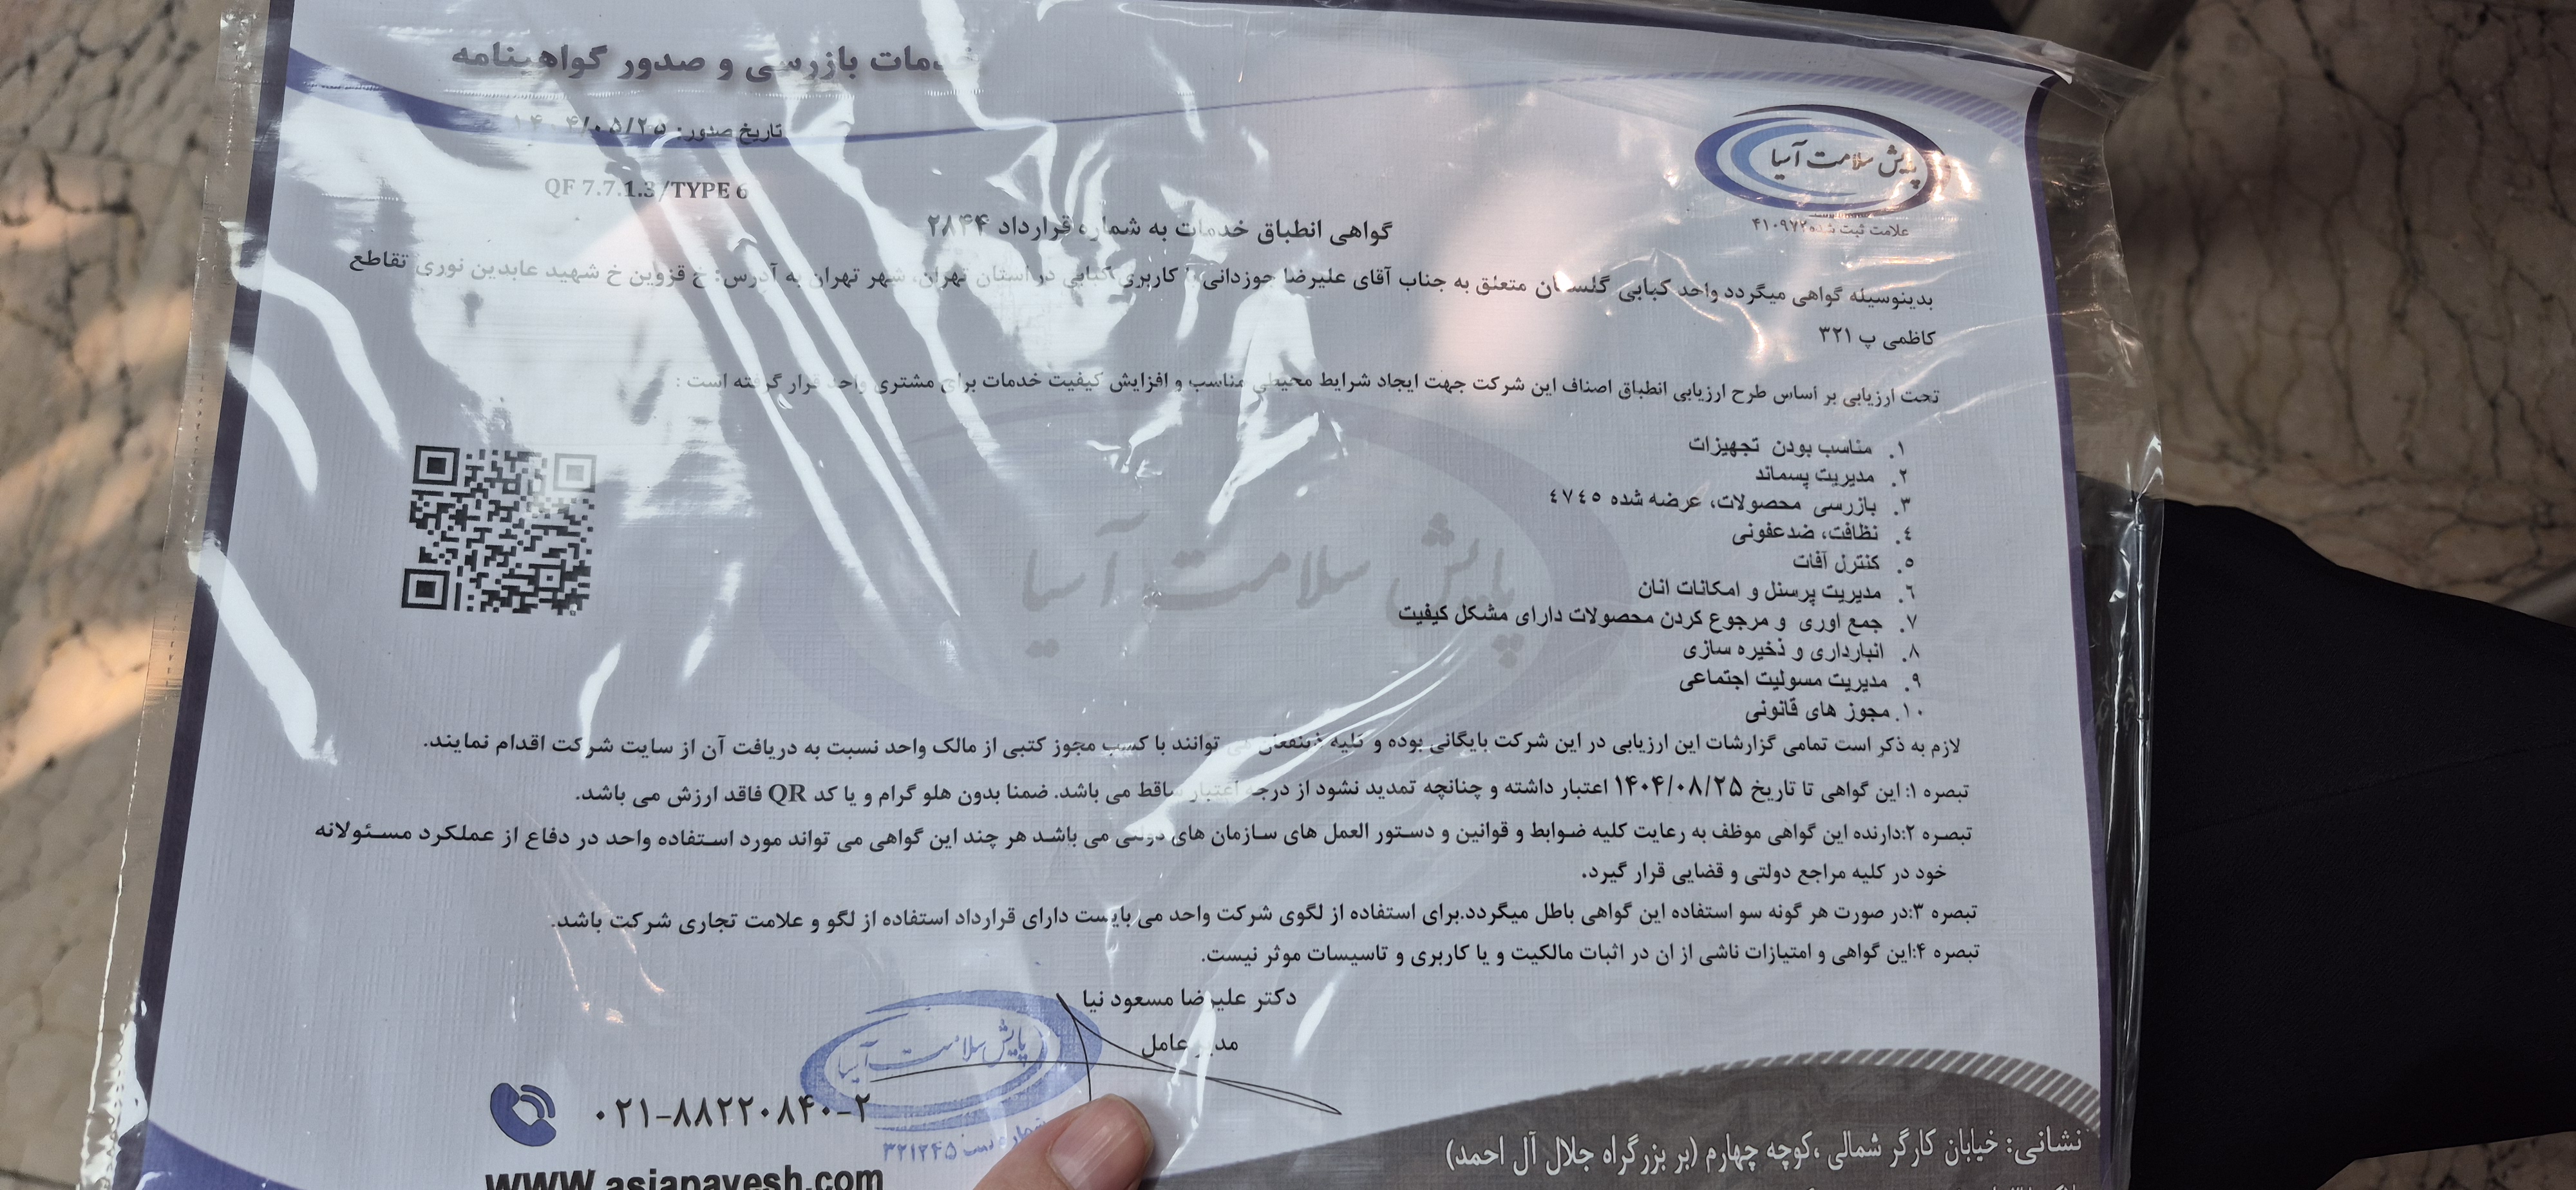 خدمات بازرسی و صدور گواهینامه
تاریخ صدور: ۱۴۰۴/۰۵/۲۵
QF 7.7.1.3/TYPE 6
پایش سلامت آسیا
علامت ثبت شده ۴۱۰۹۷۲
گواهی انطباق خدمات به شماره قرارداد ۲۸۴۴
بدینوسیله گواهی میگردد واحد کبابی گلستان متعلق به جناب آقای علیرضا جوزدانی با کاربری کبابی در استان تهران، شهر تهران به آدرس: خ قزوین خ شهید عابدین نوری تقاطع
کاظمی پ ۳۲۱
تحت ارزیابی بر اساس طرح ارزیابی انطباق اصناف این شرکت جهت ایجاد شرایط محیطی مناسب و افزایش کیفیت خدمات برای مشتری واحد قرار گرفته است :
۱. مناسب بودن تجهیزات
۲. مدیریت پسماند
۳. بازرسی محصولات، عرضه شده ٤٧٤٥
٤. نظافت، ضدعفونی
۵. کنترل آفات
٦. مدیریت پرسنل و امکانات انان
۷. جمع اوری و مرجوع کردن محصولات دارای مشکل کیفیت
۸. انبارداری و ذخیره سازی
۹. مدیریت مسولیت اجتماعی
۱۰. مجوز های قانونی
پایش سلامت آسیا
لازم به ذکر است تمامی گزارشات این ارزیابی در این شرکت بایگانی بوده و کلیه ذینفعان می توانند با کسب مجوز کتبی از مالک واحد نسبت به دریافت آن از سایت شرکت اقدام نمایند.
تبصره ۱: این گواهی تا تاریخ ۱۴۰۴/۰۸/۲۵ اعتبار داشته و چنانچه تمدید نشود از درجه اعتبار ساقط می باشد. ضمنا بدون هلو گرام و یا کد QR فاقد ارزش می باشد.
تبصره ۲:دارنده این گواهی موظف به رعایت کلیه ضوابط و قوانین و دستور العمل های سازمان های دولتی می باشد هر چند این گواهی می تواند مورد استفاده واحد در دفاع از عملکرد مسئولانه
خود در کلیه مراجع دولتی و قضایی قرار گیرد.
تبصره ۳:در صورت هر گونه سو استفاده این گواهی باطل میگردد.برای استفاده از لگوی شرکت واحد می بایست دارای قرارداد استفاده از لگو و علامت تجاری شرکت باشد.
تبصره ۴:این گواهی و امتیازات ناشی از ان در اثبات مالکیت و یا کاربری و تاسیسات موثر نیست.
دکتر علیرضا مسعود نیا
مدیر عامل
پایش سلامت آسیا
شماره ثبت ۳۲۱۲۴۵
۰۲۱-۸۸۲۲۰۸۴۰-۲
www.asiapayesh.com
نشانی: خیابان کارگر شمالی ،کوچه چهارم (بر بزرگراه جلال آل احمد)